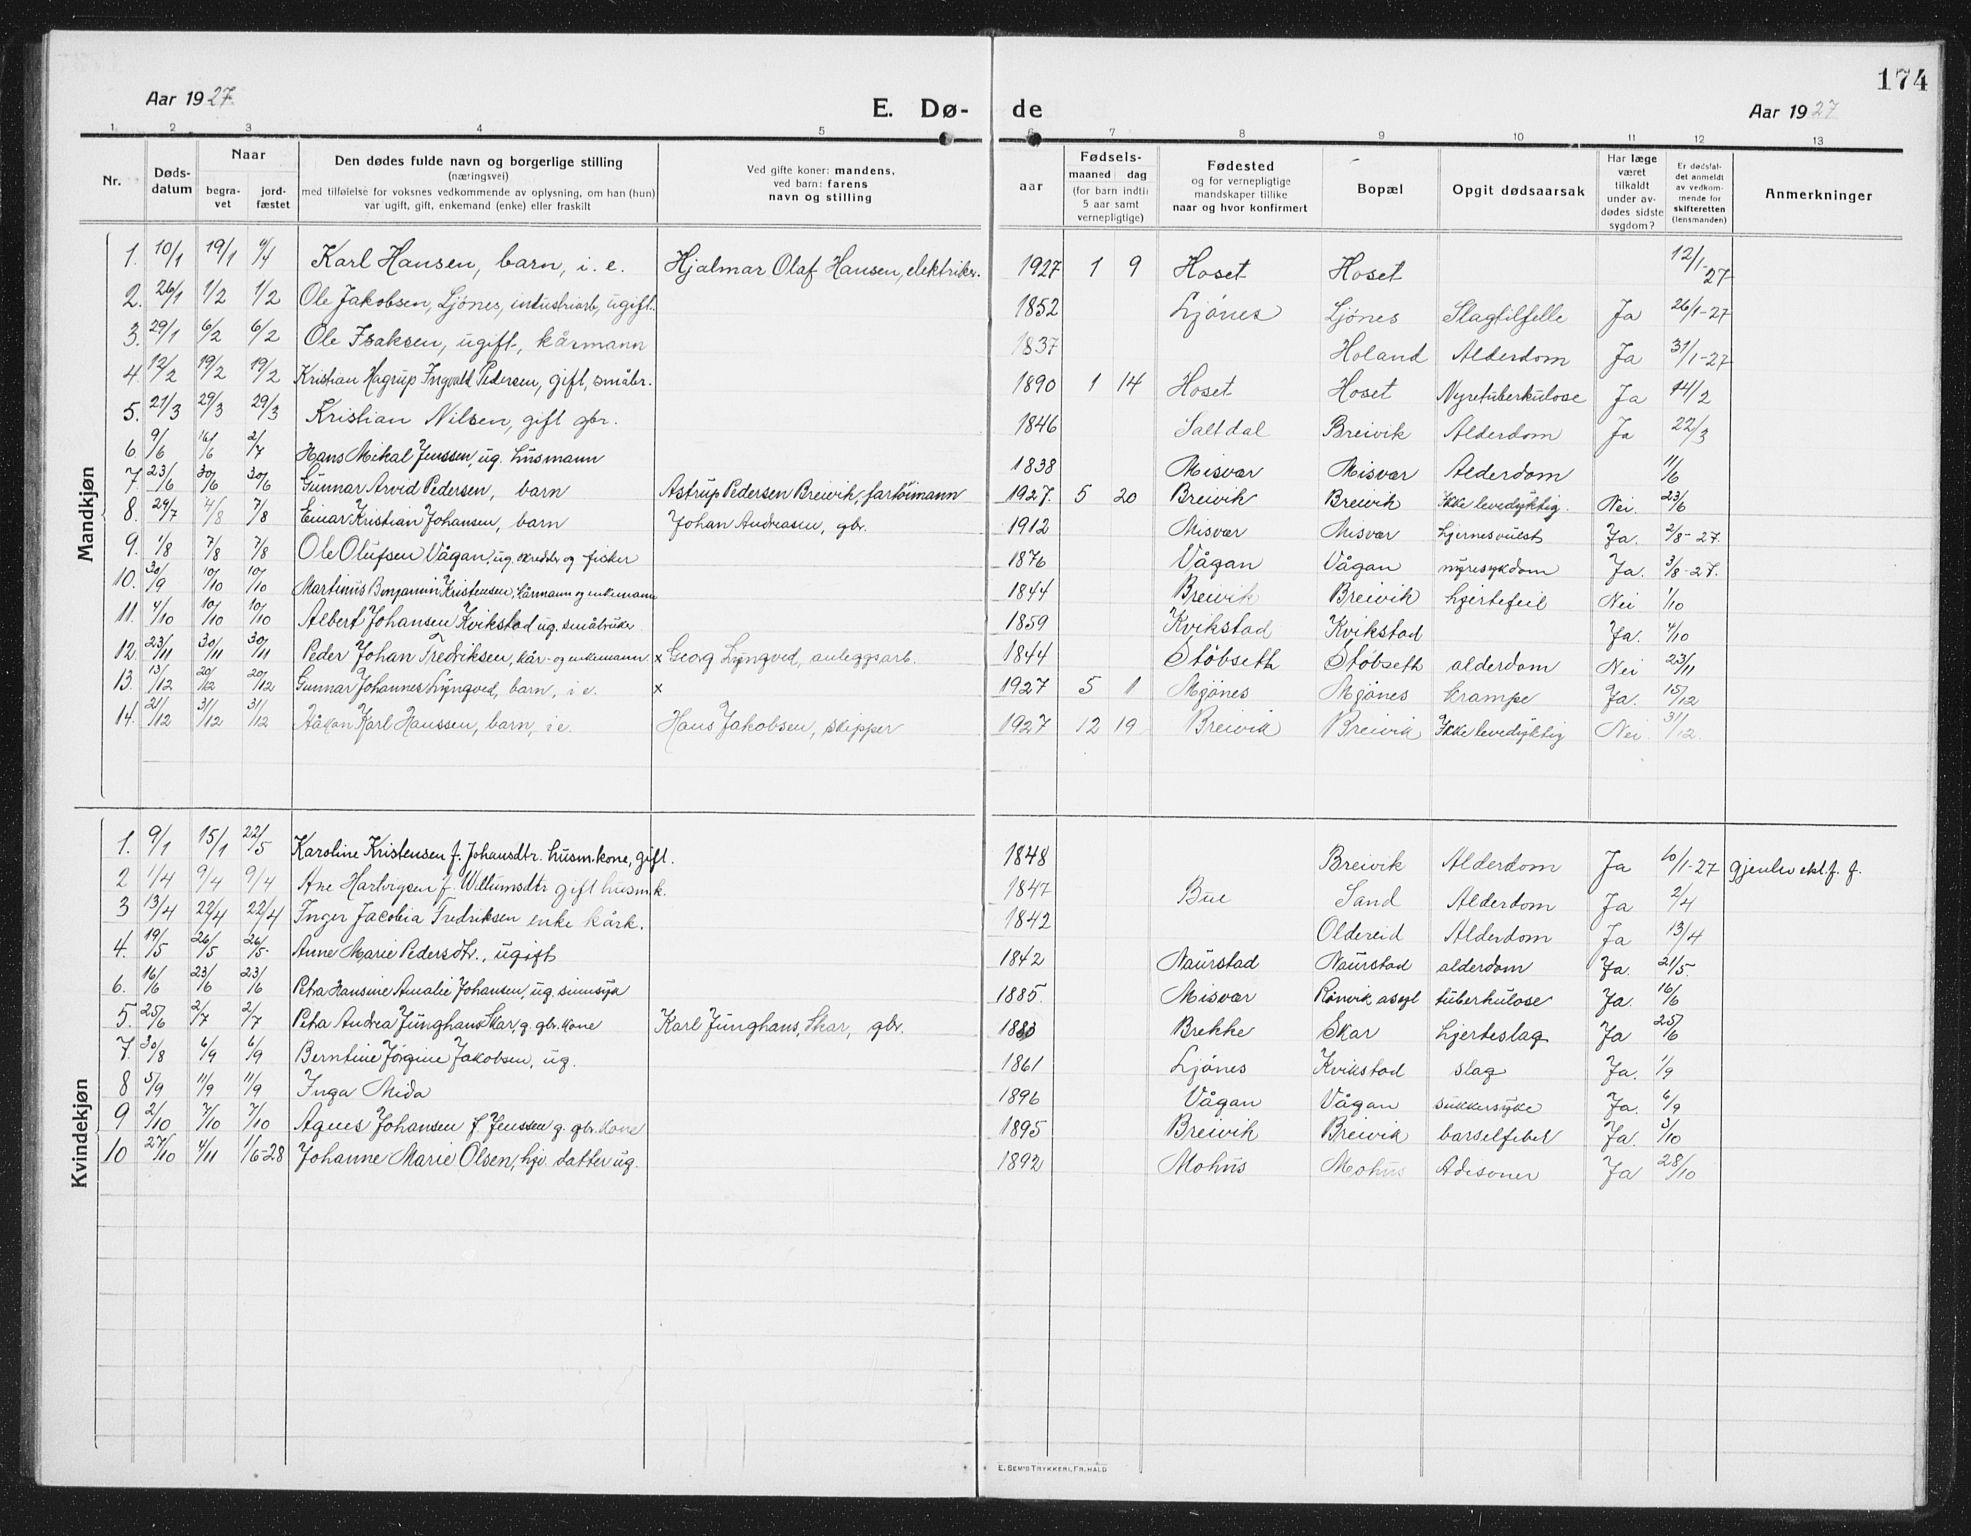 174
Aar 1927. E. Dø- de Aar 1927
1. 2 3 4 5 6 7 8 9 10 11 12 13
Nr. Døds-datum Naar begra-vet jord-fæstet Den dødes fulde navn og borgerlige stilling (næringsvei) med tilføielse for voksnes vedkommende av oplysning, om han (hun) var ugift, gift, enkemand (enke) eller fraskilt Ved gifte koner: mandens, ved barn: farens navn og stilling aar Fødsels- maaned dag (for barn indtil 5 aar samt vernepligtige) Fødested og for vernepligtige mandskaper tillike naar og hvor konfirmert Bopæl Opgit dødsaarsak Har læge været tilkaldt under av-dødes sidste sygdom? Er dødsfal-det anmeldt av vedkom-mende for skifteretten (lensmanden) Anmerkninger
Mandkjøn
1. 10/1 19/1 4/4 Karl Hansen, barn, i. e. Hjalmar Olaf Hansen, elektriker. 1927 1 9 Hoset Hoset 12/1-27
2. 26/1 1/2 1/2 Ole Jakobsen, Ljønes, industriarb, ugift. 1852 Ljönes Ljönes Slagtilfelle Ja 26/1-27
3. 29/1 6/2 6/2 Ole Isaksen, ugift, kårmann 1837 Holand Alderdom Ja 31/1-27
4. 12/2 19/2 19/2 Kristian Hagrup Ingvald Pedersen, gift, småbr. 1890 1 14 Hoset Hoset Nyretuberkulose Ja 14/2
5. 21/3 29/3 29/3 Kristian Nilsen, gift gbr. 1846 Saltdal Breivik Alderdom Ja 22/3
6. 9/6 16/6 2/7 Hans Mikal Jenssen, ug. husmann 1838 Misvær Misvær Alderdom 11/6
7. 23/6 30/6 30/6 Gunnar Arvid Pedersen, barn Astrup Pedersen Breivik, fartöimann 1927. 5 20 Breivik Breivik Ikke levedyktig. Nei. 23/6
8. 29/7 4/8 7/8 Einar Kristian Johansen, barn Johan Andreasen, gbr. 1912 Misvær Misvær hjernesvulst Ja. 2/8-27.
9. 1/8 7/8 7/8 Ole Olufsen Vågan, ug. skredder og fisker 1876 Vågan Vågan nyresykdom Ja. 3/8-27.
10. 30/9 10/10 10/10 Martinus Benjamin Kristensen, kårmann og enkemann 1844 Breivik Breivik hjertefeil Nei 1/10
11. 4/10 10/10 10/10 Albert Johansen Kvikstad ug. småbruker 1859 Kvikstad Kvikstad Ja. 4/10
12. 23/11 30/11 30/11 Peder Johan Fredriksen, kår- og enkemann x Georg Lyngved, anleggsarb. 1844 Støbseth Støbseth alderdom Nei 23/11
13. 13/12 20/12 20/12 Gunnar Johannes Lyngved, barn, i e. x 1927 5 1 Mjönes Mjönes krampe Ja. 15/12
14. 21/12 31/12 31/12 Håkon Karl Hanssen, barn, i e. Hans Jakobsen, skipper 1927 12 19 Breivik Breivik Ikke levedyktig Nei 31/12.
Kvindekjøn
1. 9/1 15/1 22/5 Karoline Kristensen f. Johansdtr. husm.kone, gift. 1848 Breivik Alderdom Ja 10/1-27
2 1/4 9/4 9/4 Ane Hartvigsen f. Willumsdtr gift husm.k. 1847 Bue Sand Alderdom Ja 2/4
3 13/4 22/4 22/4 Inger Jacobia Fredriksen enke kårk. 1842 Oldereid Alderdom Ja 13/4
4. 19/5 26/5 26/5 Anne Marie Pedersdtr., ugift 1842 Naurstad Naurstad alderdom Ja. 21/5
6. 16/6 23/6 23/6 Petra Hansine Amalie Johansen, ug. sinnsyk 1885. Misvær Rönvik asyl tuberkulose Ja. 16/6
5. 25/6 2/7 2/7 Petra Andrea Junghans Skar, g. gbr. kone Karl Junghans, Skar, gbr. 1883 Brekke Skar hjerteslag Ja 25/6
7. 30/8 6/9 6/9 Berntine Jørgine Jakobsen, ug. 1861 Ljönes Kvikstad slag Ja. 1/9
8 5/9 11/9 11/9 Inga Mida 1896 Vågan Vågan sukkersyke Ja. 6/9
9 2/10 7/10 7/10 Agnes Johansen f. Jenssen g. gbr. kone 1895 Breivik Breivik barselfeber Ja. 3/10
10 27/10 4/11 1/6-28 Johanne Marie Olsen, hjv. datter ug. 1892 Mohus Mohus Adisoner Ja 28/10
E. SEM'S TRYKKERI, FR.HALD